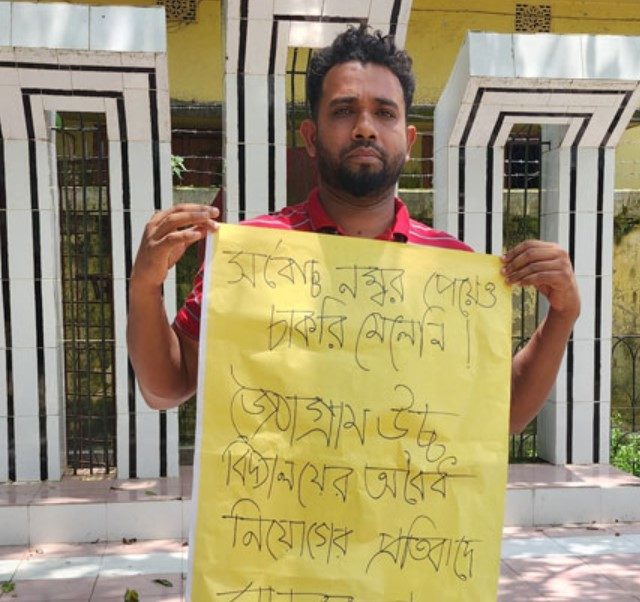 সর্বোচ্চ নম্বর পেয়েও
চাকরি মেলেনি।
জৈষ্ঠাগ্রাম উচ্চ
বিদ্যালয়ের অবৈধ
নিয়োগের প্রতিবাদে